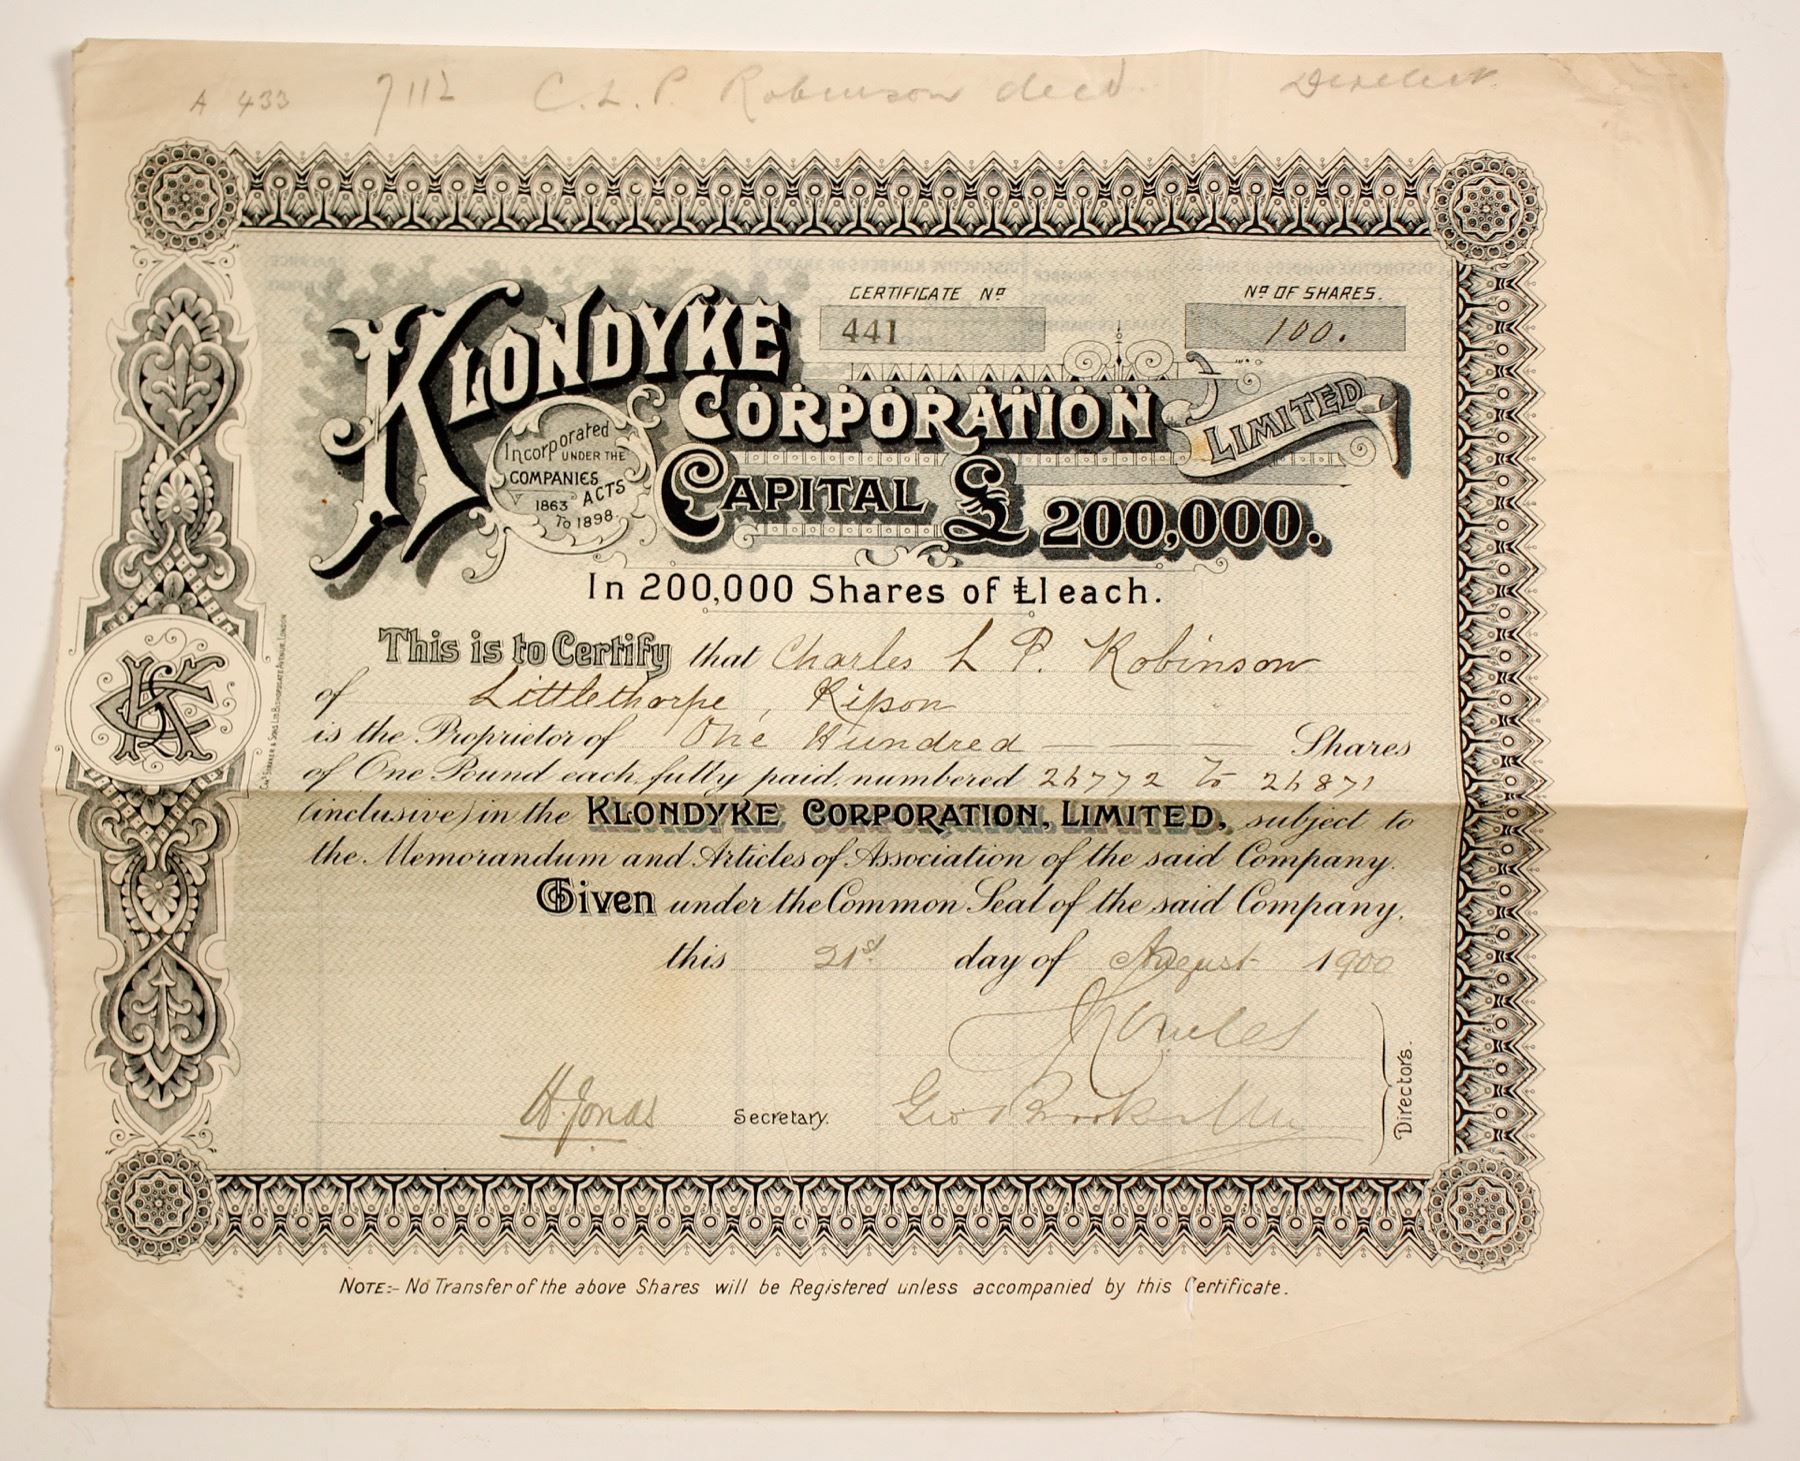 A 433 7112 C. L. P. Robinson decd.
CERTIFICATE Nº Nº OF SHARES.
441 100.
KLONDYKE
CORPORATION LIMITED
Incorporated
UNDER THE
COMPANIES
ACTS
1863
To 1898.
CAPITAL £ 200,000.
In 200,000 Shares of £1 each.
This is to Certify that Charles L P. Robinson
of Littlethorpe, Ripon
is the Proprietor of One Hundred — — — Shares
of One Pound each, fully paid, numbered 26772 to 26871
(inclusive) in the KLONDYKE CORPORATION, LIMITED, subject to
the Memorandum and Articles of Association of the said Company.
Given under the Common Seal of the said Company,
this 21st. day of August 1900
H. Jonas Secretary. Geo
Directors.
NOTE:- No Transfer of the above Shares will be Registered unless accompanied by this Certificate.
KC